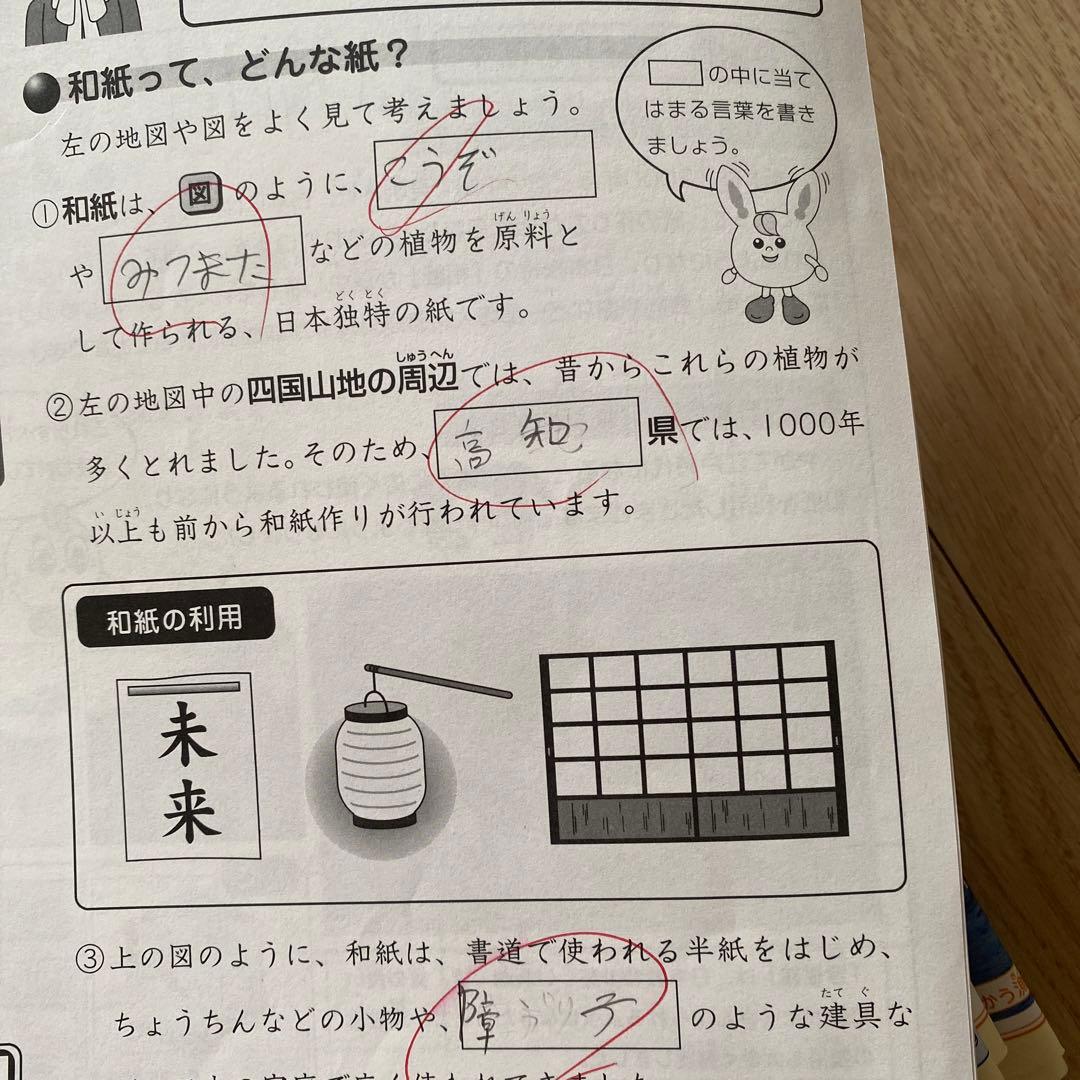 和紙って、どんな紙？
左の地図や図をよく見て考えましょう。
□の中に当て
はまる言葉を書き
ましょう。
①和紙は、図のように、こうぞ
やみつまたなどの植物を原料と
げんりょう
して作られる、日本独特の紙です。
どくとく
②左の地図中の四国山地の周辺では、昔からこれらの植物が
しゅうへん
多くとれました。そのため、高知県では、1000年
以上も前から和紙作りが行われています。
いじょう
和紙の利用
未来
③上の図のように、和紙は、書道で使われる半紙をはじめ、
ちょうちんなどの小物や、障子のような建具な
たてぐ